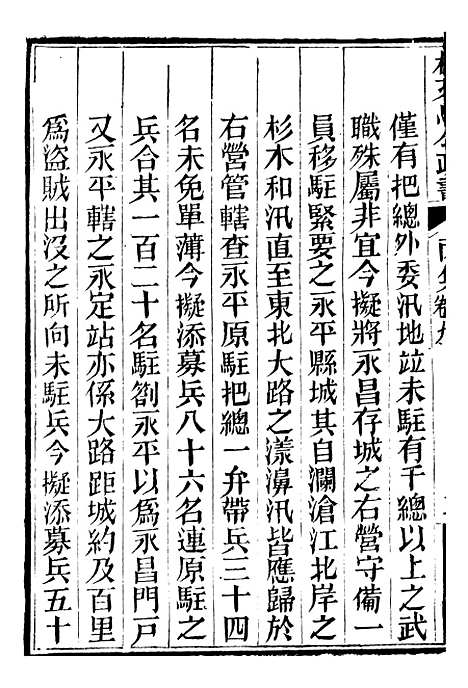 林文忠公政書
僅有把總外委汛地竝未駐有千總以上之武
職殊屬非宜今擬將永昌存城之右營守備一
員移駐緊要之永平縣城其自瀾滄江北岸之
杉木和汛直至東北大路之漾濞汛皆應歸於
右營管轄查永平原駐把總一弁帶兵三十四
名未免單薄今擬添募兵八十六名連原駐之
兵合其一百二十名駐劄永平以爲永昌門戸
又永平轄之永定站亦係大路距城約及百里
爲盜賊出沒之所向未駐兵今擬添募兵五十